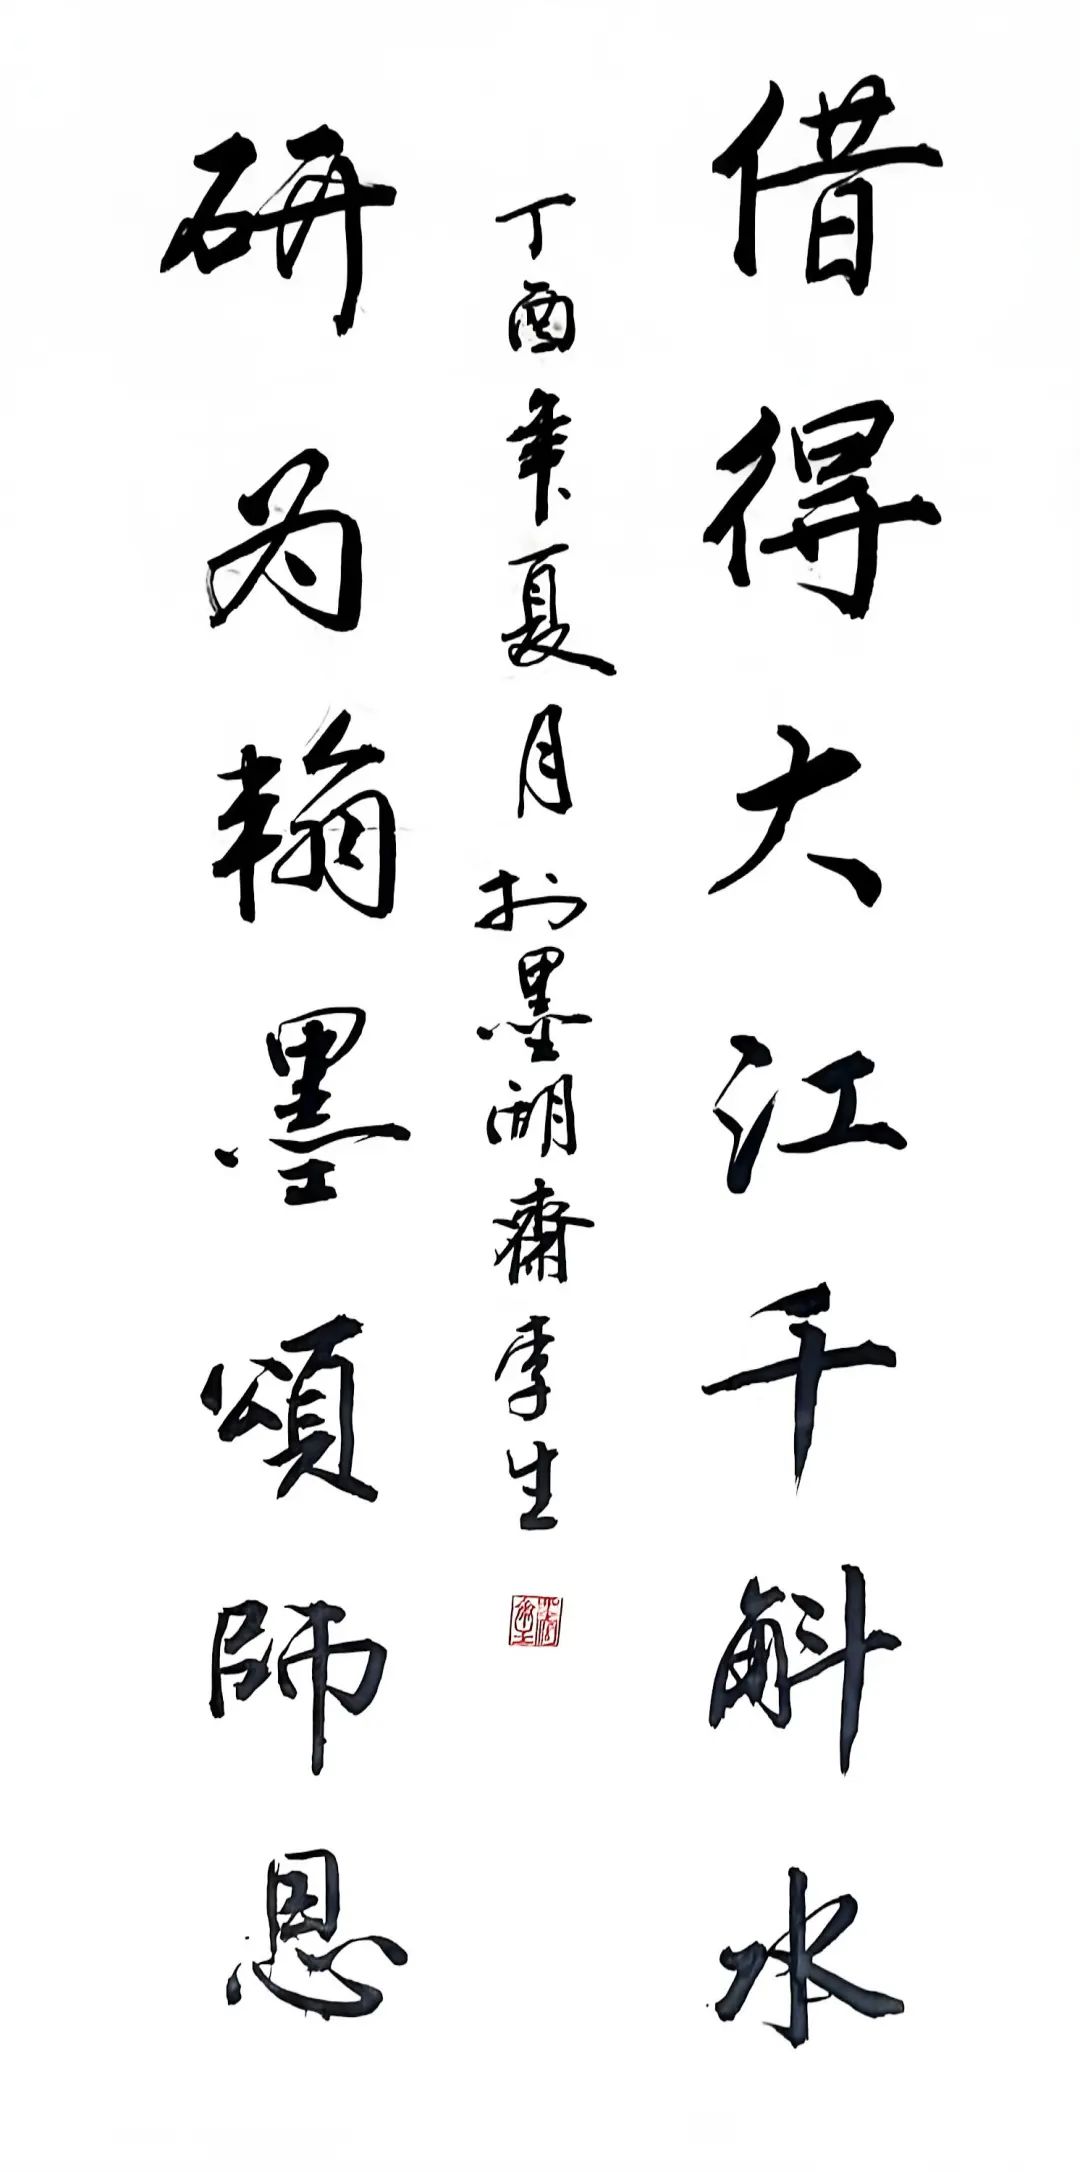 借得大江千斛水
研为翰墨頌師恩
丁酉年夏月於墨湖齋李生